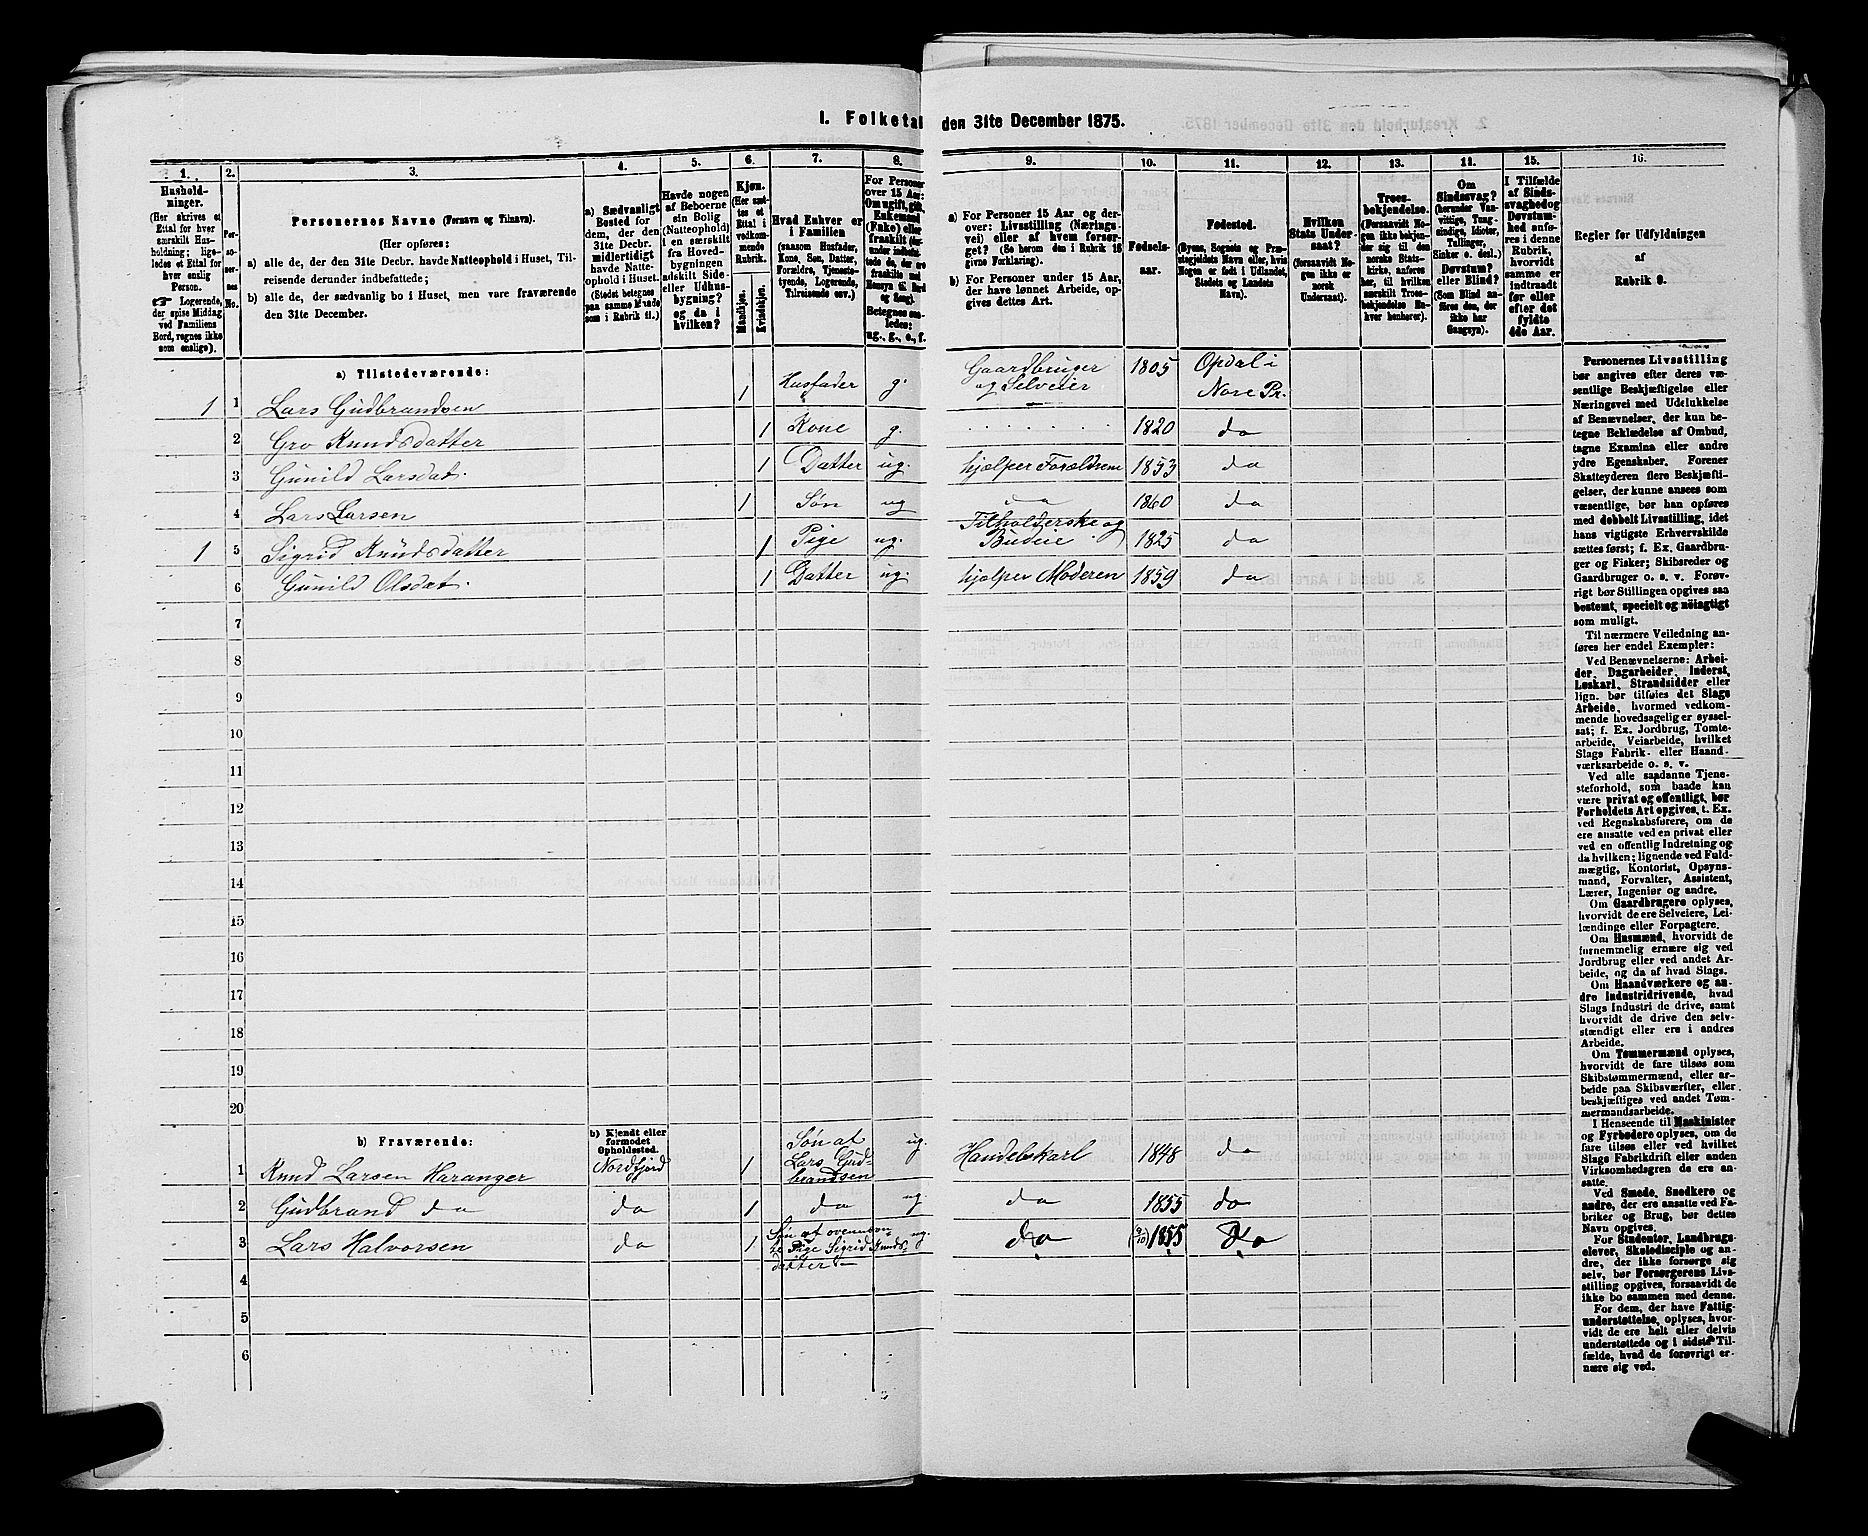 I. Folketal den 31te December 1875.
1. 2. 3. 4. 5. 6. 7. 8. 9. 10. 11. 12. 13. 11. 15. 16.
Hushold-
ninger.
(Her skrives et
Ettal for hver
særskilt Hus-
holdning; lige-
ledes et Ettal for
hver enslig
Person.
☞ Logerende,
der spise Middag
ved Familiens
Bord, regnes ikke
som enslige).
Per-
so-
ner-
nes
No.
Personernes Navne (Fornavn og Tilnavn).
(Her opføres:
a) alle de, der den 31te Decbr. havde Natteophold i Huset, Til-
reisende derunder indbefattede;
b) alle de, der sædvanlig bo i Huset, men vare fraværende
den 31te December.
a) Sædvanligt
Bosted for
dem, der den
31te Decbr.
midlertidigt
havde Natte-
ophold i Huset.
(Stedet betegnes
paa samme Maade
som i Rubrik 11.)
Havde nogen
af Beboerne
sin Bolig
(Natteophold)
i en særskilt
fra Hoved-
bygningen
adskilt Side-
eller Udhus-
bygning?
og da i
hvilken?
Kjøn.
(Her sæt-
tes et
Ettal i
vedkom-
mende
Rubrik.
Mandkjøn.
Kvindekjøn.
Hvad Enhver er
i Familien
(saasom Husfader,
Kone, Søn, Datter,
Forældre, Tjeneste-
tyende, Logerende,
Tilreisende osv.)
For Personer
over 15 Aar:
Om ugift, gift,
Enkemand
(Enke) eller
fraskilt
Betegnes saa-
ledes:
ug., g., e., f.
a) For Personer 15 Aar og der-
over: Livsstilling (Nærings-
vei) eller af hvem forsør-
get? (Se herom den i Rubrik 16
givne Forklaring).
b) For Personer under 15 Aar,
der have lønnet Arbeide, op-
gives dettes Art.
Fødsels-
aar.
Fødested.
(Byens, Sognets og Præ-
stegjeldets Navn eller, hvis
Nogen er født i Udlandet,
Stedets og Landets
Navn).
Hvilken
Stats Under-
saat?
(forsaavidt No-
gen ikke er
norsk
Undersaat).
Troes-
bekjendelse.
(Forsaavidt No-
gen ikke bekjen-
der sig til den
norske Stats-
kirke, anføres
her, til hvilken
særskilt Troes-
bekjendelse En-
hver henhører).
Om
Sindssvag?
(herunder Van-
vittige, Tung-
sindige, Idioter,
Tullinger,
Sinker o. desl.)
Døvstum?
eller Blind?
(Som Blind an-
føres den, der
ikke har
Gangsyn).
I Tilfælde
af Sinds-
svaghed og
Døvstum-
hed anfø-
res i denne
Rubrik,
hvorvidt
samme er
indtraadt
før eller
efter det
fyldte
4de Aar.
Regler for Udfyldningen
af
Rubrik 9.
a) Tilstedeværende:
1 1 Lars Gudbrandsen 1 Husfader g. Gaardbruger og Selveier 1805 Opdal i Nore Pr.
2 Gro Knudsdatter 1 Kone g. . . . . . . . . 1820 do
3 Gunild Larsdat. 1 Datter ug. hjælper Foræeldrene 1853 do
4 Lars Larsen 1 Søn ug do 1860 do
1 5 Sigrid Knudsdatter 1 Pige ug. Tilholderske og Budeie 1825 do
6 Gunild Olsdat. 1 Datter ug. hjælper Moderen 1859 do
7
8
9
10
11
12
13
14
15
16
17
18
19
20
b) Fraværende: b) Kjendt eller
formodet
Opholdssted.
1 Knud Larsen Haranger Nordfjord 1 Søn af Lars Gud-brandsen ug. Handelskarl 1848 do
2 Gudbrand do do 1 do ug do 1855 do
3 Lars Halvorsen do 1 Søn af ovennævn-te Pige Sigrid Knuds-datter ug. do 1855 do
4
5
6
Personernes Livsstilling
bør angives efter deres væ-
sentlige Beskjæftigelse eller
Næringsvei med Udelukkelse
af Benævnelser, der kun be-
tegne Beklædelse af Ombud,
tagne Examina eller andre
ydre Egenskaber. Forener
Skatteyderen flere Beskjæfti-
gelser, der kunne ansees som
væsentlige, bør han opføres
med dobbelt Livsstilling, idet
hans vigtigste Erhvervskilde
sættes først; f. Ex. Gaardbru-
ger og Fisker; Skibsreder og
Gaardbruger o. s. v. Forøv-
rigt bør Stillingen opgives saa
bestemt, specielt og nöiagtigt
som muligt.
Til nærmere Veiledning an-
føres her endel Exempler:
Ved Benævnelserne: Arbei-
der, Dagarbeider, Inderst,
Løskarl, Strandsidder eller
lign. bør tilføies det Slags
Arbeide, hvormed vedkom-
mende hovedsagelig er syssel-
sat; f. Ex. Jordbrug, Tomte-
arbeide, Veiarbeide, hvilket
Slags Fabrik- eller Haand-
værksarbeide o. s. v.
Ved alle saadanne Tjene-
steforhold, som baade kan
være privat og offentligt, bør
Forholdets Art opgives, t. Ex.
ved Regnskabsførere, om de
ere ansatte ved en privat eller
ved en offentlig Indretning og
da hvilken; lignende ved Fuld-
mægtig, Kontorist, Opsyns-
mand, Forvalter, Assistent,
Lærer, Ingeniør og andre.
Om Gaardbrugere oplyses,
hvorvidt de ere Selveiere, Lei-
lændinge eller Forpagtere.
Om Husmænd, hvorvidt de
fornemmelig ernære sig ved
Jordbrug eller ved andet Ar-
beide, og da af hvad Slags.
Om Haandværkere og an-
dre Industridrivende, hvad
Slags Industri de drive, samt
hvorvidt de drive den selv-
stændigt eller ere i andres
Arbeide.
Om Tømmermænd oplyses,
hvorvidt de fare tilsøs som
Skibstømmermænd, eller ar-
beide paa Skibsværfter, eller
beskjæftiges ved andet Tøm-
mermandsarbeide.
I Henseende til Maskinister
og Fyrbødere oplyses, om de
fare tilsøs eller ved hvilket
Slags Fabrikdrift eller anden
Virksomhedsgren de ere an-
satte.
Ved Smede, Snedkere og
andre, der ere ansatte ved Fa-
briker og Brug, bør dettes
Navn opgives.
For Studenter, Landbrugs-
elever, Skoledisciple og an-
dre, der ikke forsørge sig
selv, bør Forsørgerens Livs-
stilling opgives, forsaavidt de
ikke bo sammen med denne.
For dem, der have Fattig-
understøttelse, oplyses, hvor-
vidt de ere helt eller delvis
understøttede og i sidste Til-
fælde, hvad de forøvrigt er-
nære sig ved.